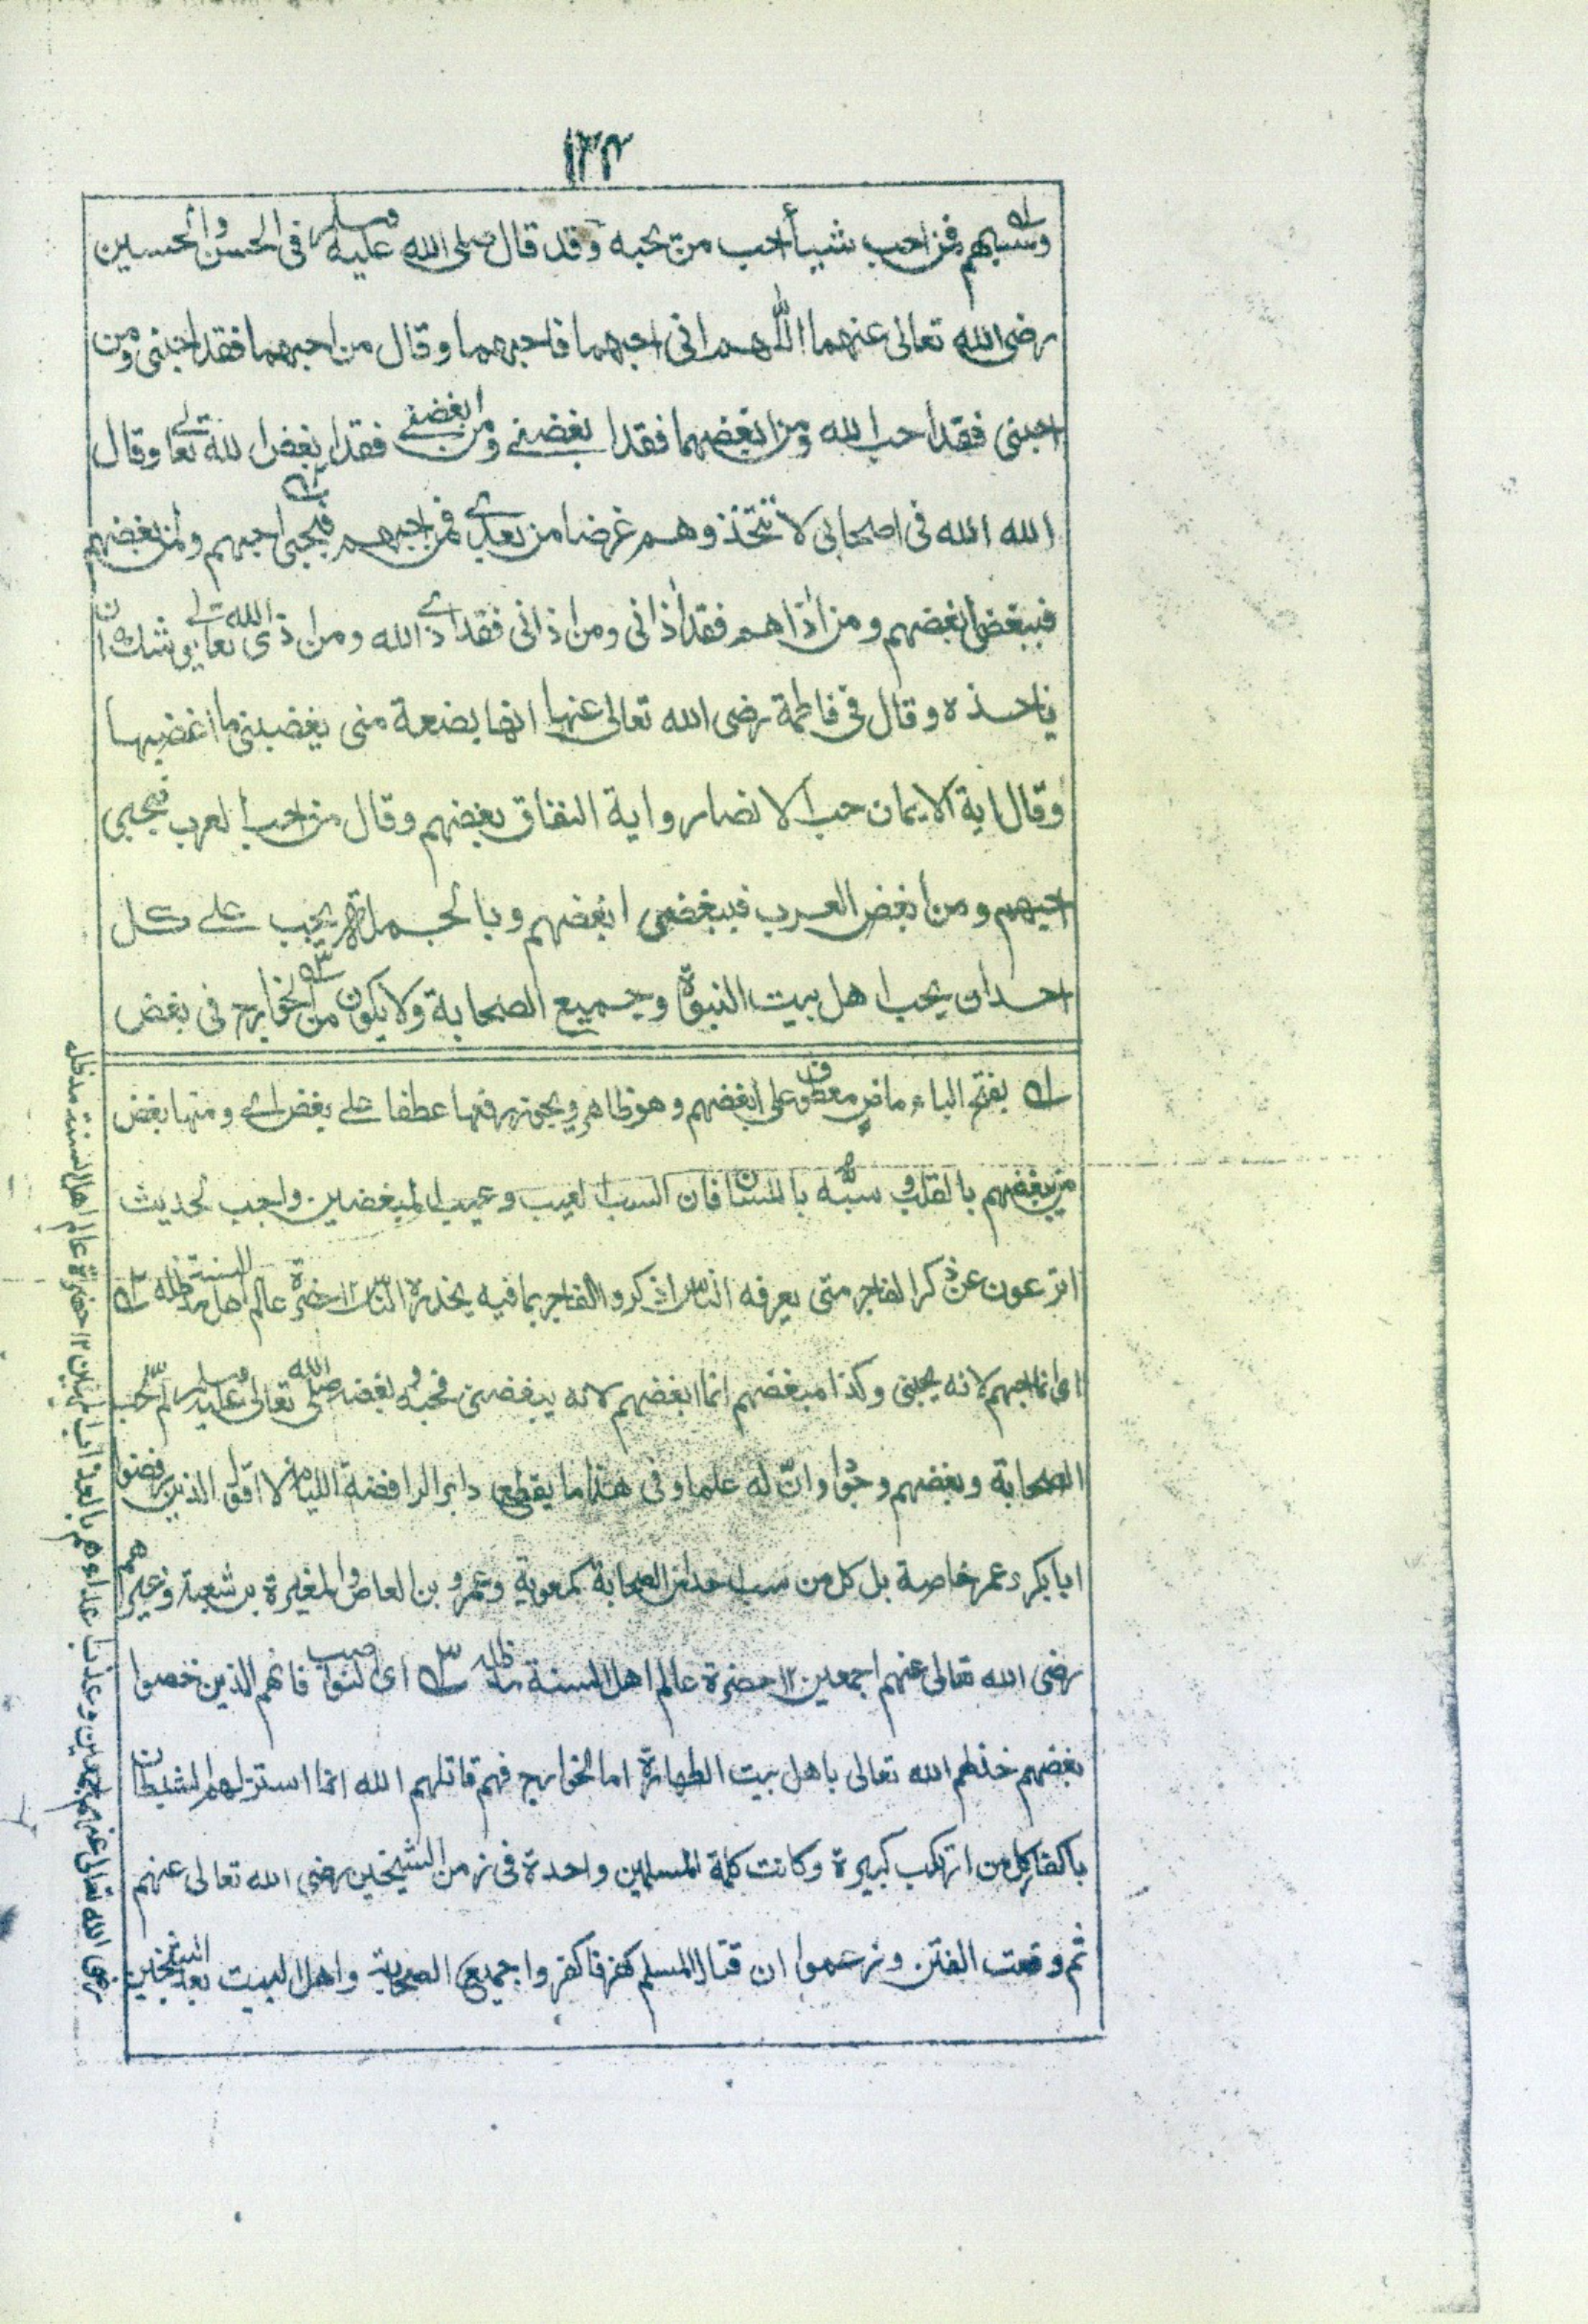 ١٣٤
وسبهم فمن احب شيأ احب من يحبه وقد قال صلى الله عليه وسلم فى الحسن والحسين
رضى الله تعالى عنهما اللهم انى احبهما فاحبهما وقال من احبهما فقد احبنى ومن
احبنى فقد احب الله ومن ابغضهما فقد ابغضنى ومن ابغضنى فقد ابغض الله تعالى وقال
الله الله فى اصحابى لا تتخذوهم غرضا من بعدى فمن احبهم فبحبى احبهم ومن ابغضهم
فببغضى ابغضهم ومن اذاهم فقد اذانى ومن اذانى فقد اذى الله ومن اذى الله تعالى يوشك ان
ياخذه وقال فى فاطمة رضى الله تعالى عنها انها بضعة منى يغضبنى ما اغضبها
وقال اية الايمان حب الانصار واية النفاق بغضهم وقال من احب العرب فبحبى
احبهم ومن ابغض العرب فببغضى ابغضهم وبالجملة يجب على كل
احد ان يحب اهل بيت النبوة وجميع الصحابة ولا يكون من الخوارج فى بغض
١ بفتح الباء ماض معطوف على ابغضهم وهو ظاهر ويجوز رفعها عطفا على بغض اى ومنها بغض
من يبغضهم بالقلب وسبّه باللسان فان السب لعيب وعيب المبغضين واجب لحديث
اترعون عن ذكر الفاجر متى يعرفه الناس اذكروا الفاجر بما فيه يحذره الناس ١٢ حضرة عالم اهل السنة مدظله ٢
اى انما احبهم لانه يحبنى وكذا مبغضهم انما ابغضهم لانه يبغضنى فحبه وبغضه صلى الله تعالى عليه وسلم لحب
الصحابة وبغضهم وجودا وان له علما وفى هذا ما يقطع دابر الرافضة الليام لا اقول الذين رفضوا
ابا بكر وعمر خاصة بل كل من سب احدا من الصحابة كمعوية وعمرو بن العاص والمغيرة بن شعبة وغيرهم
رضى الله تعالى عنهم اجمعين ١٢ حضرة عالم اهل السنة مدظله ٣ اى النواصب فانهم الذين خصوا
بغضهم خذلهم الله تعالى باهل بيت الطهارة اما الخوارج فهم قاتلهم الله انما استزلهم الشيطان
باكفار كل من ارتكب كبيرة وكانت كلمة المسلمين واحدة فى زمن الشيخين رضى الله تعالى عنهم
ثم وقعت الفتن وزعموا ان قتال المسلم كفر فاكفروا جميع الصحابة واهل البيت بعد الشيخين
رضى الله تعالى عنهم اجمعين وعذب اعداءهم بالعذاب المهين ١٢ حضرة عالم اهل السنة مدظله